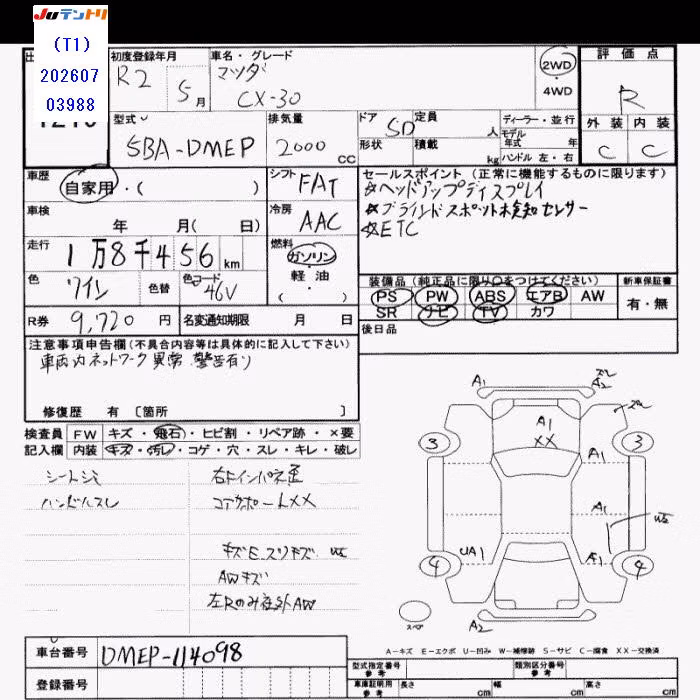 JUテントリ
(T1)
202607
03988
初度登録年月
R2 5月
車名・グレード
マツダ
CX-30
2WD
4WD
評価点
R
外装 内装
C C
型式
5BA-DMEP
排気量
2000 cc
ドア 5D
形状
定員 人
積載 kg
ディーラー・並行
モデル年式 年
ハンドル 左・右
車歴
自家用・( )
シフト FAT
車検
年 月( 日)
冷房 AAC
走行
1万8千456 km
燃料
ガソリン
軽・油
( )
色 ワイン
色替
色コード 46V
R券 9,720 円
名変通知期限 月 日
セールスポイント (正常に機能するものに限ります)
☆ヘッドアップディスプレイ
☆ブラインドスポット検知センサー
☆ETC
装備品(純正品に限り○をつけてください)
PS PW ABS エアB AW
SR ナビ TV カワ
新車保証書
有・無
後日品
注意事項申告欄(不具合内容等は具体的に記入して下さい)
車両内ネットワーク異常 警告有り
修復歴 有 〔箇所 〕
検査員記入欄
FW キズ・飛石・ヒビ割・リペア跡・×要
内装 キズ・汚レ・コゲ・穴・スレ・キレ・破レ
シートシミ
ハンドルスレ
右Fインパネ歪
コアサポートXX
キズE.スリキズ W2
AWキズ
左Rのみ社外AW
A1
A2
A1
XX
3
3
A1
A1
W2
UA1
4
4
スペア
A2
A-キズ E-エクボ U-凹み W-補修跡 S-サビ C-腐食 XX-交換済
車台番号 DMEP-114098
登録番号
型式指定番号 参考
類別区分番号 参考
車庫証明用 参考
長さ cm
幅 cm
高さ cm